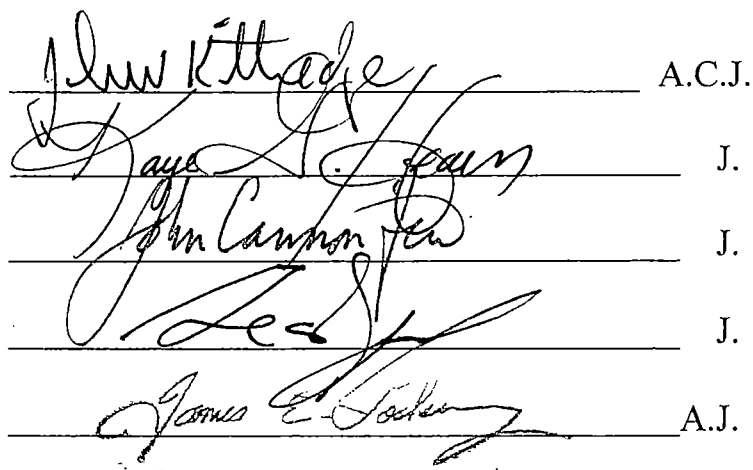 John Kittredge A.C.J.
Kaye G. Hearn J.
John Cannon Few J.
J.
James E. A.J.